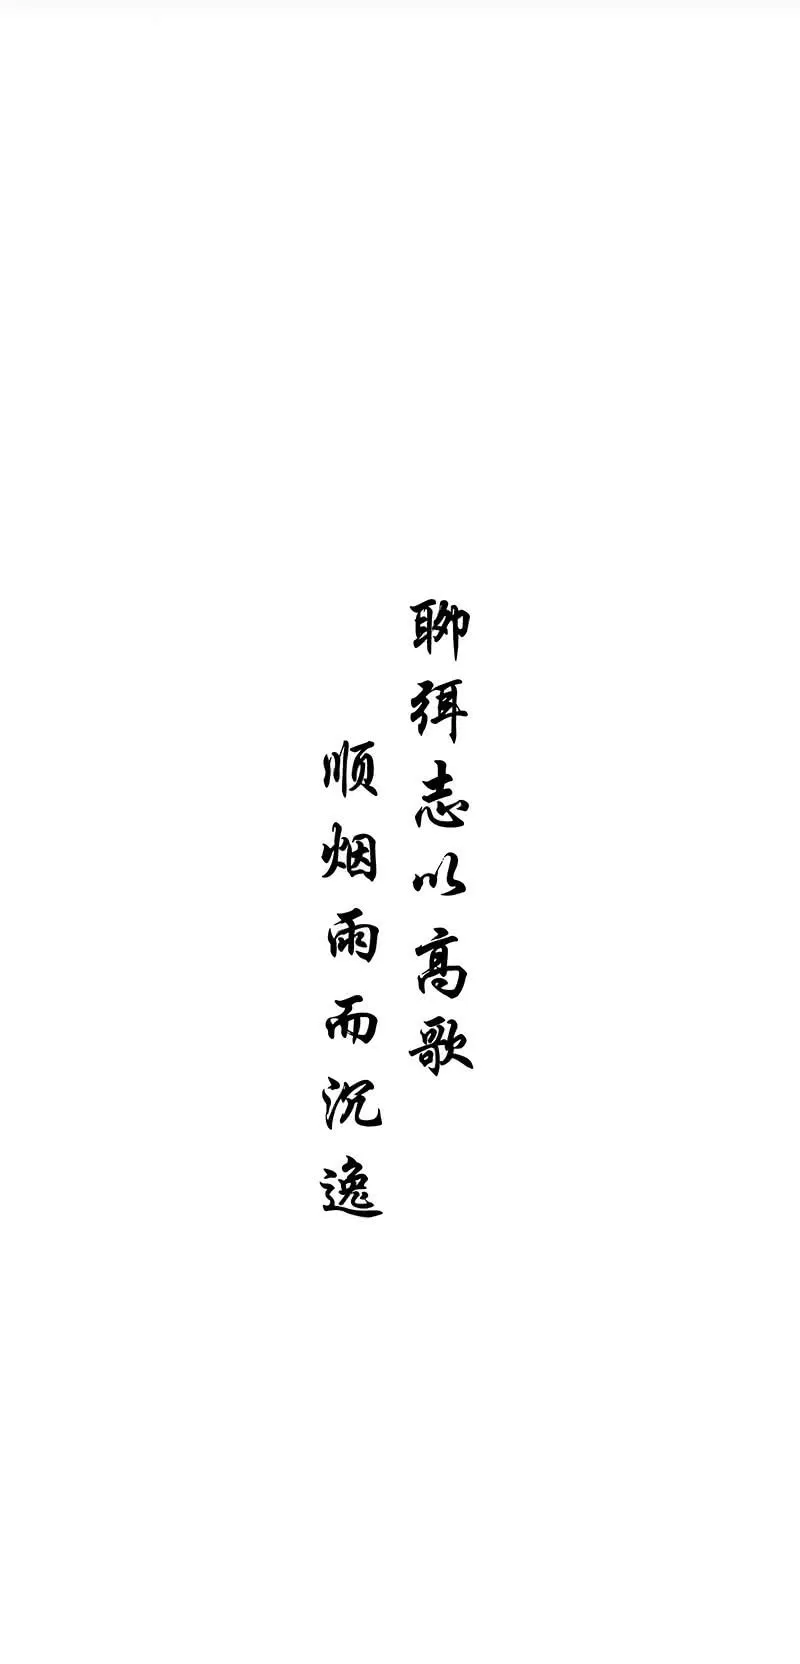 聊弭志以高歌
顺烟雨而沉逸